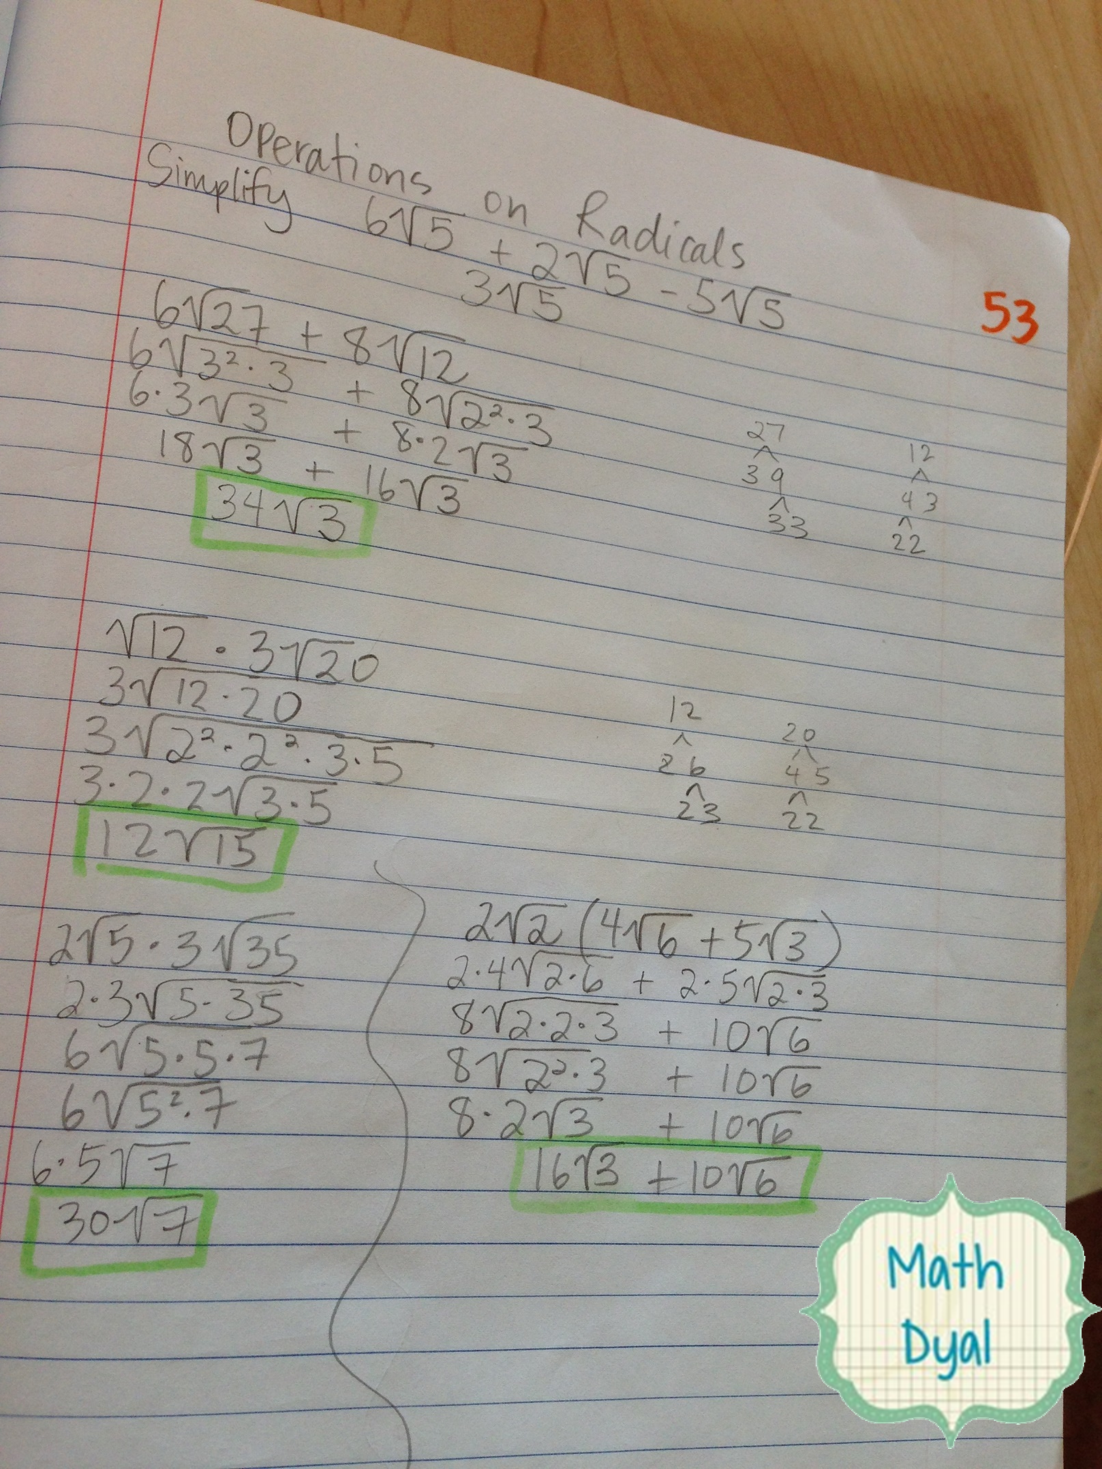 Operations on Radicals
Simplify 6√5 + 2√5 - 5√5
3√5
53
6√27 + 8√12
6√3²·3 + 8√2²·3
6·3√3 + 8·2√3
18√3 + 16√3
34√3
27
3 9
3 3
12
4 3
2 2
√12 · 3√20
3√12·20
3√2²·2²·3·5
3·2·2√3·5
12√15
12
2 6
2 3
20
4 5
2 2
2√5·3√35
2·3√5·35
6√5·5·7
6√5²·7
6·5√7
30√7
2√2(4√6 + 5√3)
2·4√2·6 + 2·5√2·3
8√2·2·3 + 10√6
8√2²·3 + 10√6
8·2√3 + 10√6
16√3 + 10√6
Math
Dyal